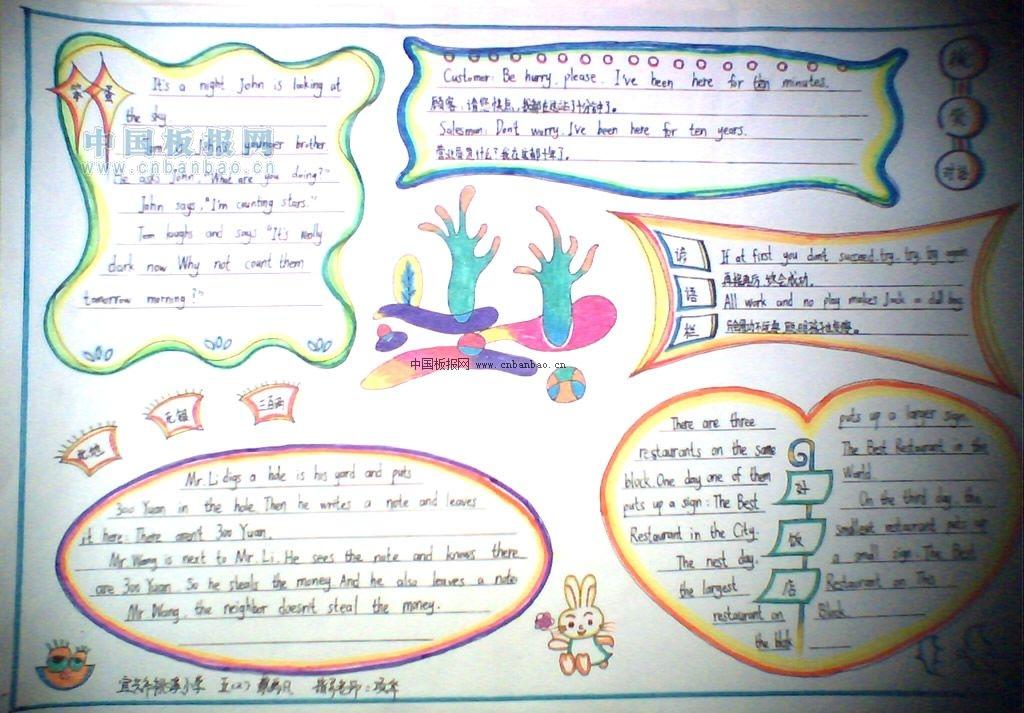 笨蛋
It's a night John is looking at
the sky
John's younger brother
He asks John, "What are you doing?"
John says, "I'm counting stars."
Tom laughs and says "It's really
dark now Why not count them
tomorrow morning?"
中国板报网
www.cnbanbao.cn
Customer: Be hurry, please. I've been here for ten minutes.
顾客：请您快点，我都在这站了十分钟了。
Salesman: Don't worry. I've been here for ten years.
营业员：急什么？我在这都十年了。
对话
谚语栏
If at first you don't succeed, try, try, try again.
再接再厉，终会成功。
All work and no play makes Jack a dull boy.
中国板报网 www.cnbanbao.cn
此地
无银
三百两
Mr. Li digs a hole is his yard and puts
300 Yuan in the hole. Then he writes a note and leaves
it here: There aren't 300 Yuan.
Mr. Wang is next to Mr. Li. He sees the note and knows there
are 300 Yuan So he steals the money And he also leaves a note
Mr Wang, the neighbor doesn't steal the money.
好饭店
There are three
restaurants on the same
block. One day one of them
puts up a sign: The Best
Restaurant in the City.
The nest day,
the largest
restaurant on
the block
puts up a larger sign.
The Best Restaurant in the
World.
On the third day, the
smallest restaurant puts up
a small sign: The Best
Restaurant on This
Block
小学 五(2) 指导老师：